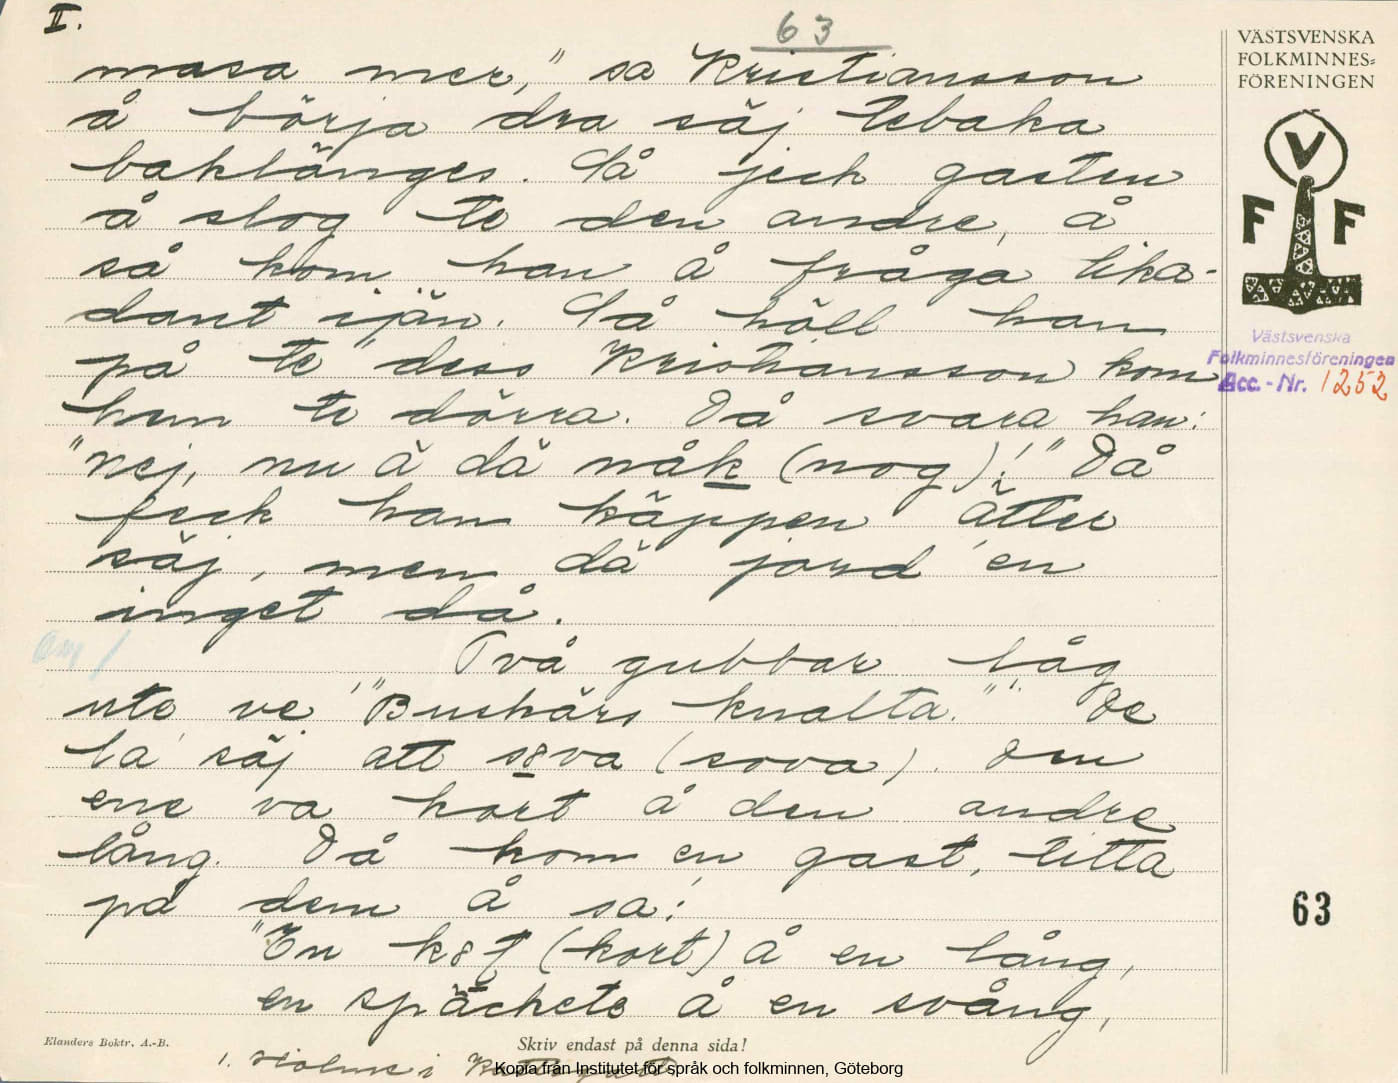 II.
63
VÄSTSVENSKA
FOLKMINNES=
FÖRENINGEN
V
F F
Västsvenska
Folkminnesföreningen
Acc.-Nr. 1252
masa mer," sa Kristiansson
å börja dra säj tebaka
baklänges. Så jeck gasten
å slog te den andre, å
så kom han å fråga lika-
dant ijän. Så höll han
på te dess Kristiansson kom
hem te dörra. Då svara han:
"nej, nu ä dä nåk (nog)!" Då
feck han käppen ätter
säj, men dä jord'en
inget då.
Två gubbar låg
ute ve "Buskärs knalta."¹ De
la säj att s8va (sova). Den
ene va kort å den andre
lång. Då kom en gast, titta
på dem å sa:
"En k8t (kort) å en lång,
en späckete å en svång,
63
Elanders Boktr. A.-B.
Skriv endast på denna sida!
1. Holme i
Kopia från Institutet för språk och folkminnen, Göteborg